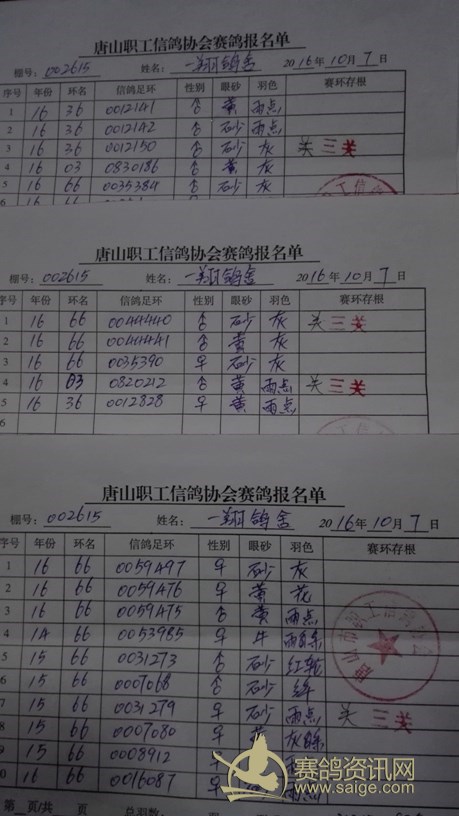 唐山职工信鸽协会赛鸽报名单
棚号：002615 姓名：一翔鸽舍 2016年10月7日
序号 年份 环名 信鸽足环 性别 眼砂 羽色 赛环存根
1 16 36 0012141 ♂ 黄 雨点
2 16 36 0012142 ♂ 砂 雨点
3 16 36 0012150 ♂ 砂 灰 关 三关
4 16 03 0830186 ♂ 黄 灰
5 16 66 0035384 ♂ 砂 灰
6
唐山职工信鸽协会赛鸽报名单
棚号：002615 姓名：一翔鸽舍 2016年10月7日
序号 年份 环名 信鸽足环 性别 眼砂 羽色 赛环存根
1 16 66 0044440 ♂ 砂 灰 关 三关
2 16 66 0044441 ♂ 黄 灰
3 16 66 0035390 ♀ 砂 灰
4 16 03 0820212 ♂ 黄 雨点 关 三关
5 16 36 0012828 ♀ 黄 雨点
唐山职工信鸽协会赛鸽报名单
棚号：002615 姓名：一翔鸽舍 2016年10月7日
序号 年份 环名 信鸽足环 性别 眼砂 羽色 赛环存根
1 16 66 0059497 ♀ 砂 灰
2 16 66 0059476 ♀ 黄 花
3 16 66 0059475 ♂ 黄 雨点
4 14 66 0053985 ♀ 牛
5 15 66 0031273 ♂ 砂 红轮
6 15 66 0007068 ♂ 砂
7 15 66 0031279 ♀ 砂 雨点 关 三关
8 15 66 0007080 ♀ 黄
9 15 66 0008912 ♀
0 16 66 0016087 ♀ 雨点
第 页/共 页 总羽数：
赛鸽资讯网
www.saige.com